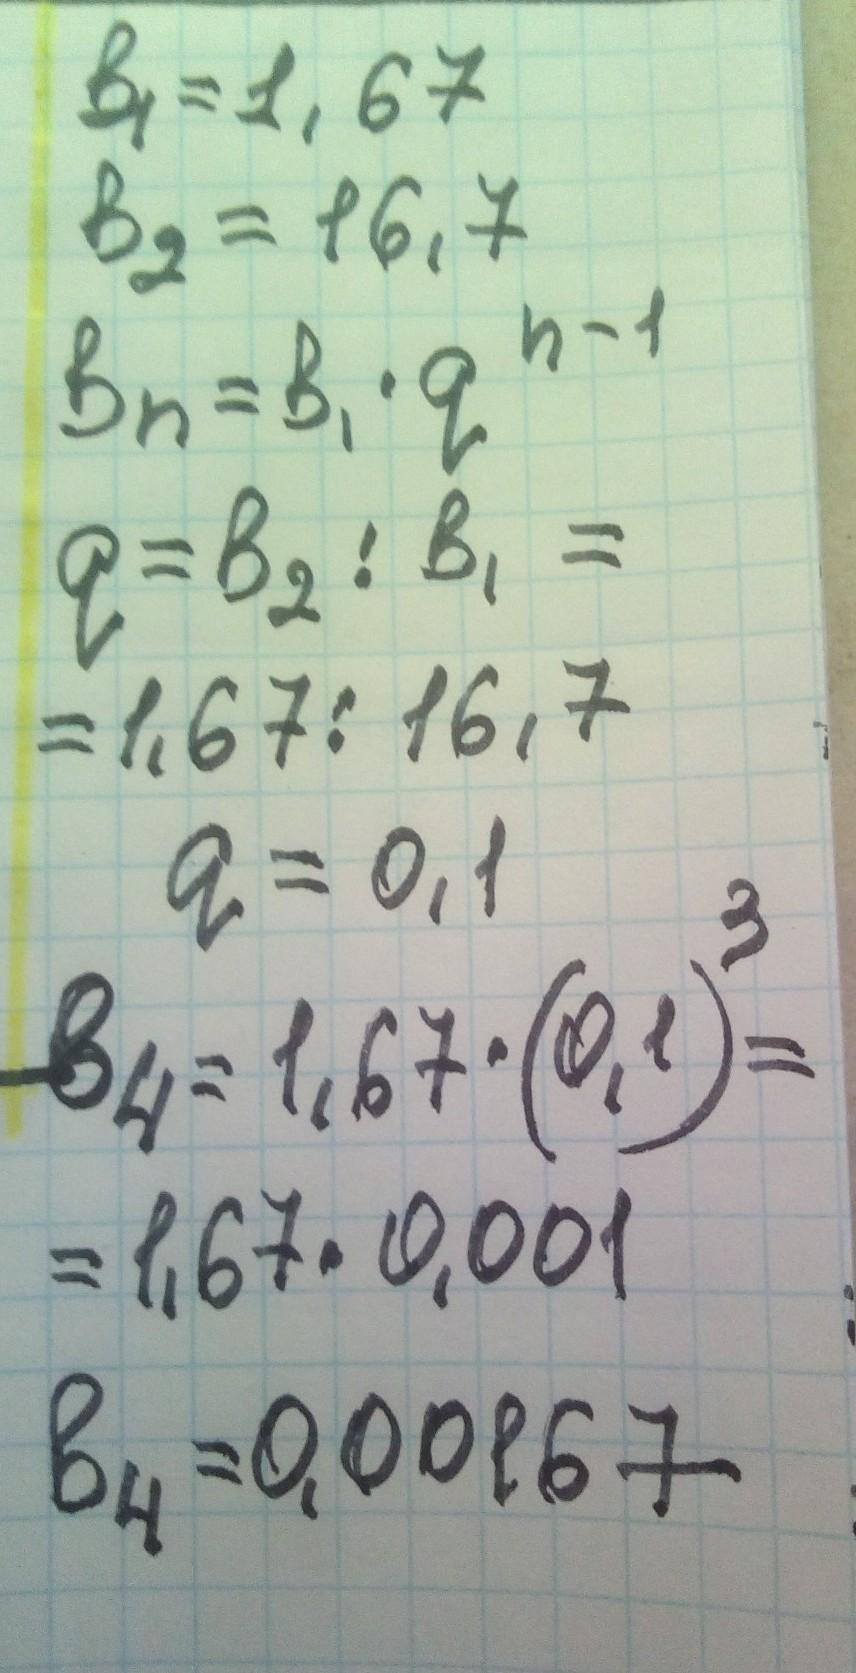 b₁ = 1,67
b₂ = 16,7
bₙ = b₁ · qⁿ⁻¹
q = b₂ : b₁ =
= 1,67 : 16,7
q = 0,1
b₄ = 1,67 · (0,1)³ =
= 1,67 · 0,001
b₄ = 0,00167